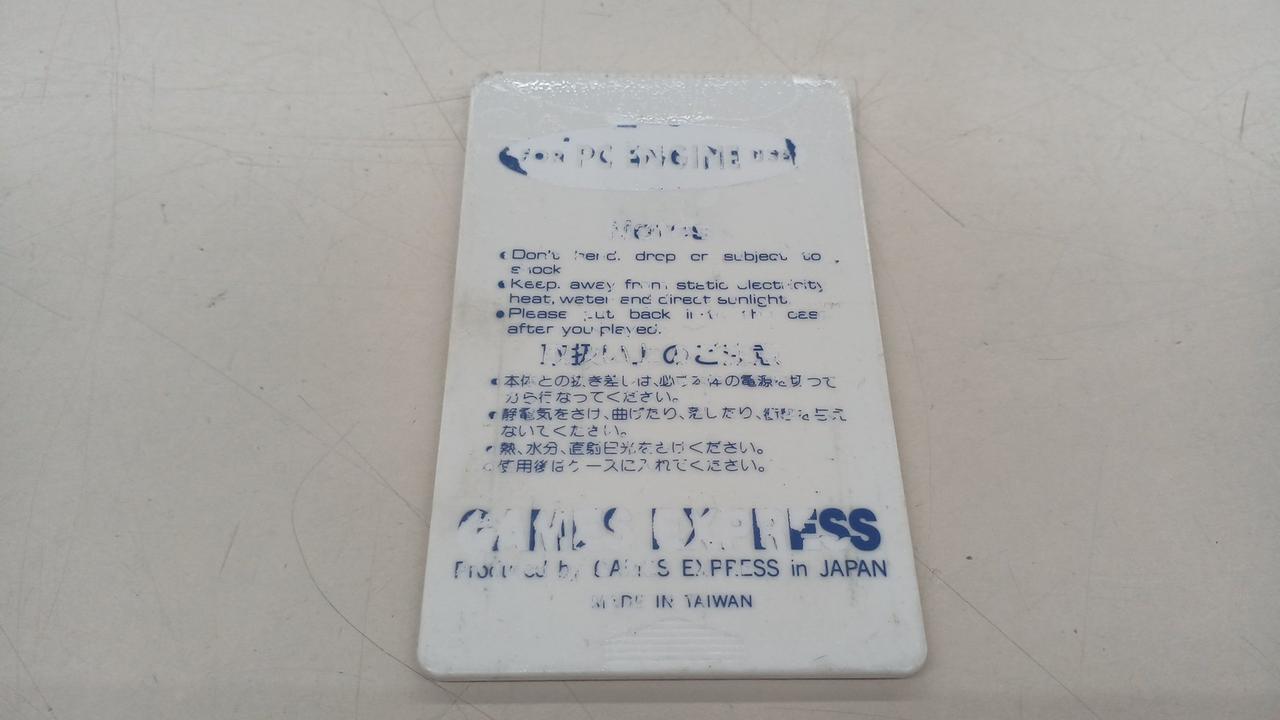 FOR PC ENGINE USE
Notes
•Don't bend, drop or subject to
shock
•Keep away from static electricity
heat, water and direct sunlight
•Please put back into the case
after you played.
取扱い上のご注意
•本体との抜き差しは、必ず本体の電源を切って
から行なってください。
•静電気をさけ、曲げたり、落したり、衝撃を与え
ないでください。
•熱、水分、直射日光をさけください。
•使用後はケースに入れてください。
GAMES EXPRESS
Produced by GAMES EXPRESS in JAPAN
MADE IN TAIWAN